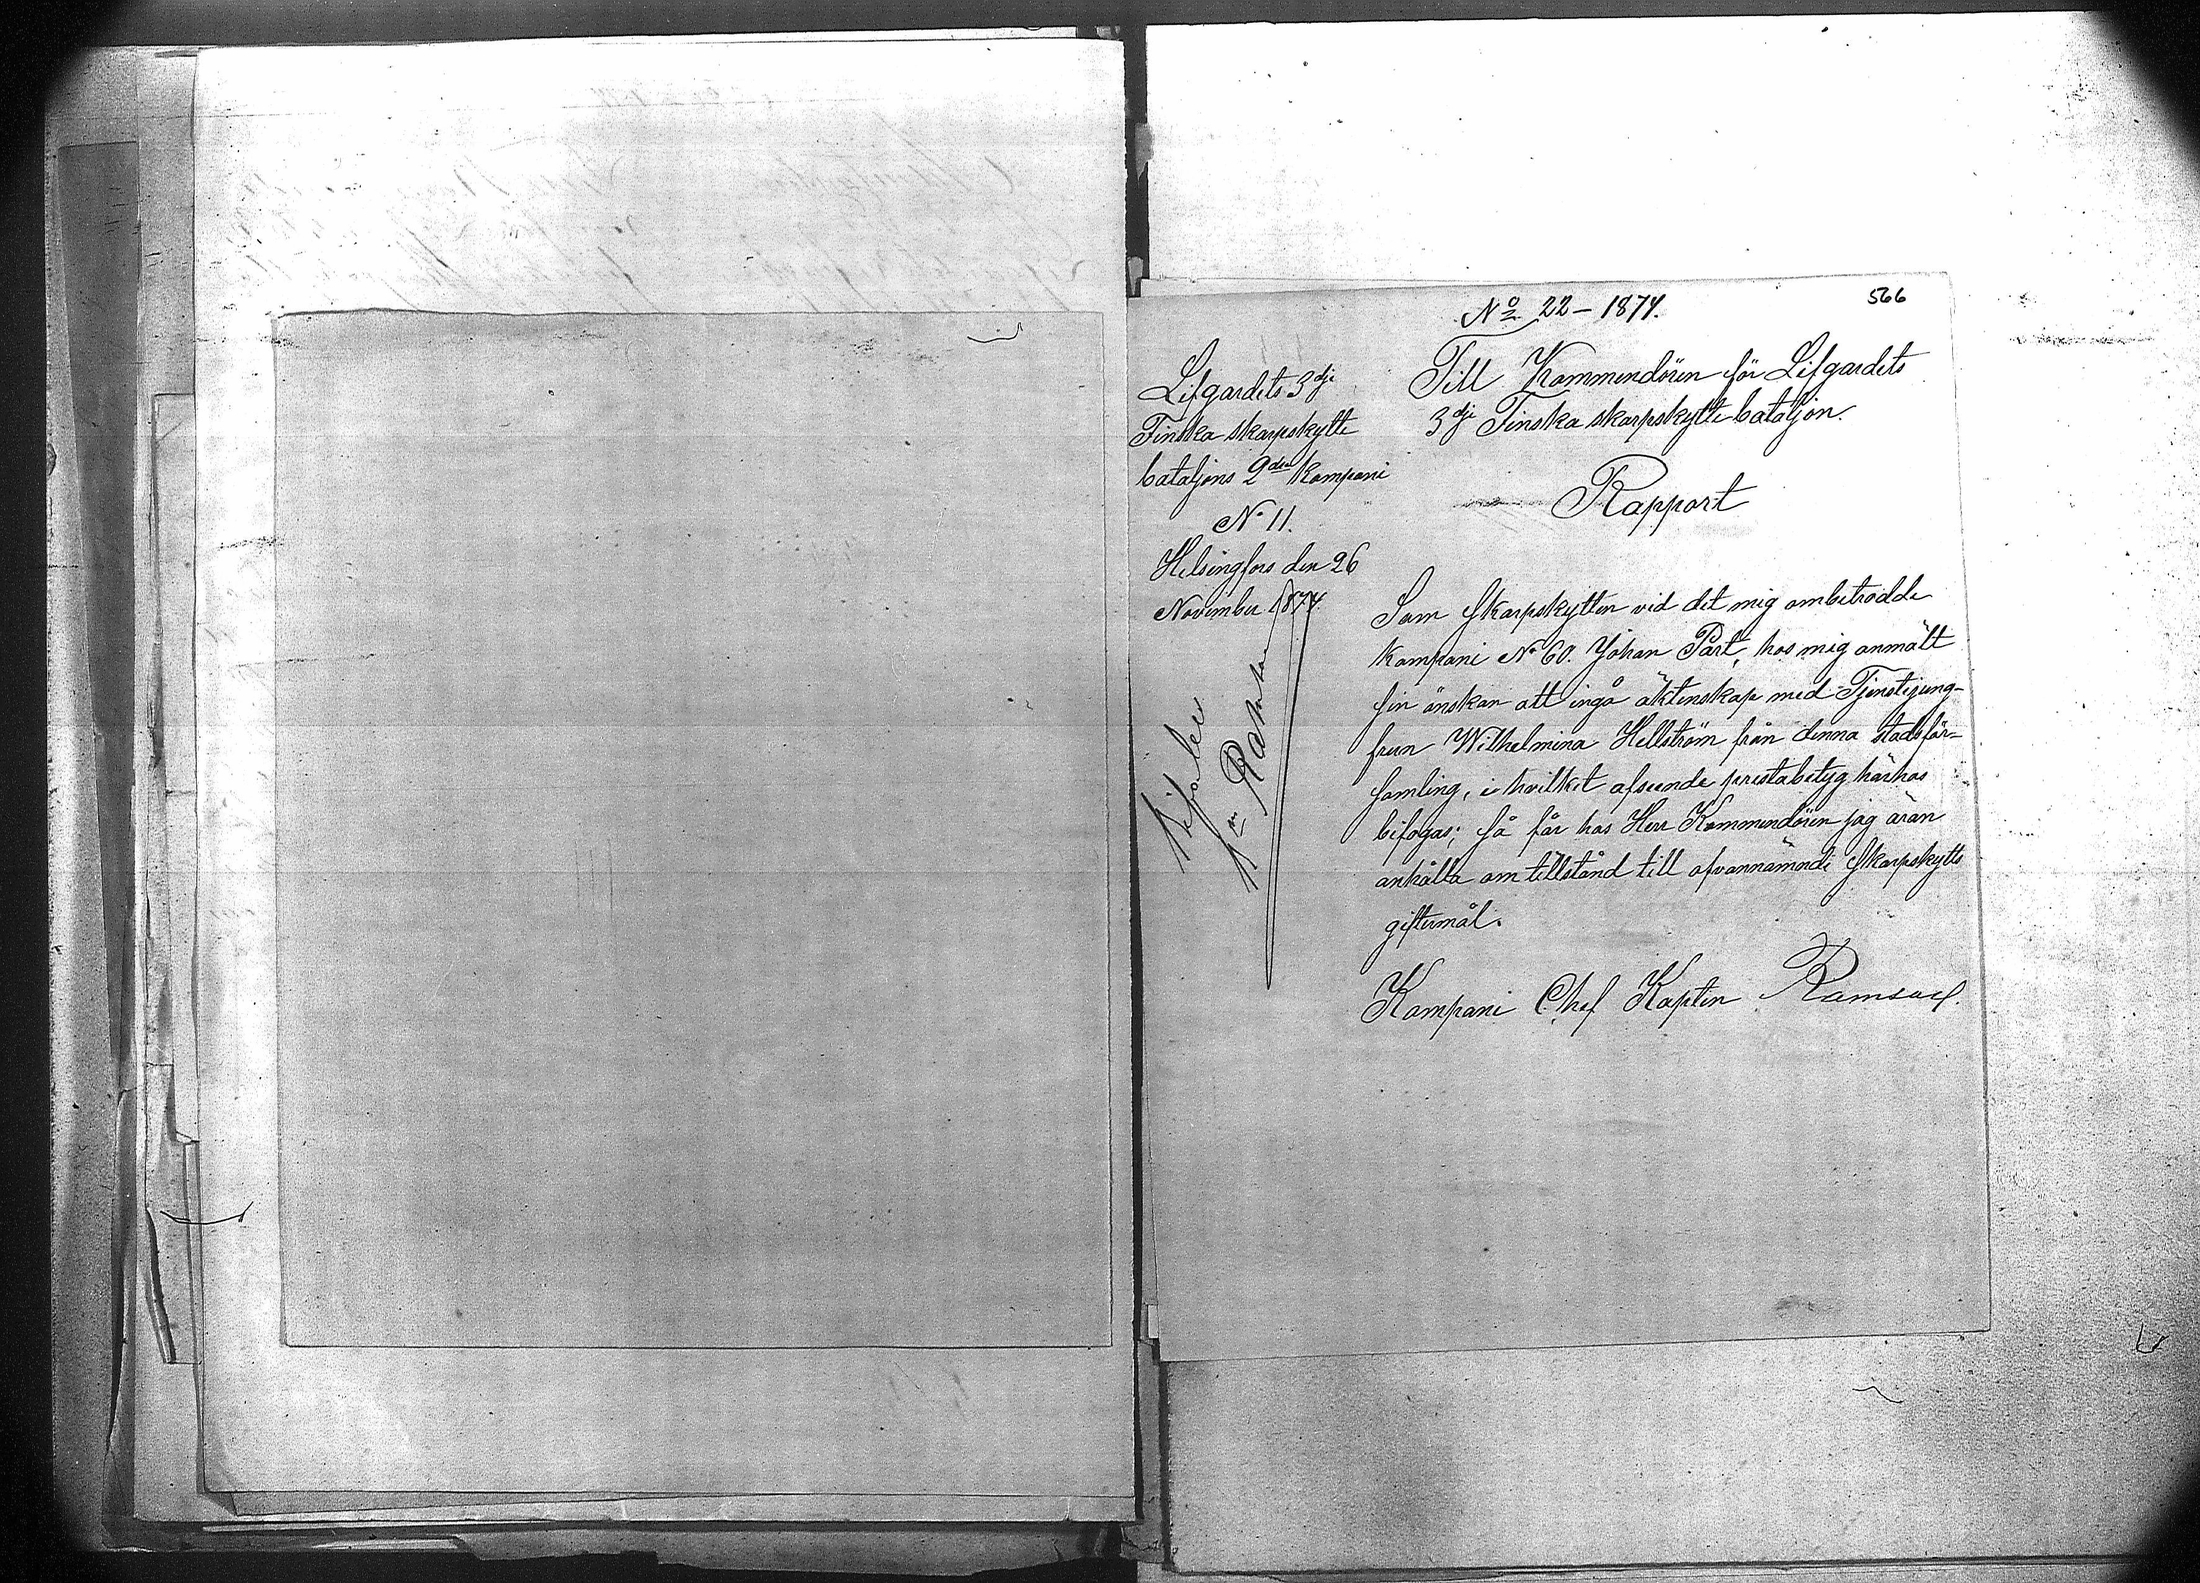 No 22 – 1874.
566
Lifgardets 3dje
Finska skarpskytte
bataljons 2dra kompani
No 11.
Helsingfors den 26
November 1874.
Bifalles
Till Kommendören för Lifgardets
3dje Finska skarpskytte bataljon.
Rapport
Som Skarpskytten vid det mig ombetrodde
kompani No 60. Johan Part, hos mig anmält
sin önskan att ingå äktenskap med Tjenstejung-
frun Wilhelmina Hellström från denna stadsför-
samling, i hvilket afseende prestabetyg härhos
bifogas; så får hos Herr Kommendören jag äran
anhålla om tillstånd till ofvannämnde Skarpskytts
giftermål.
Kompani Chef Kapten Ramsay.